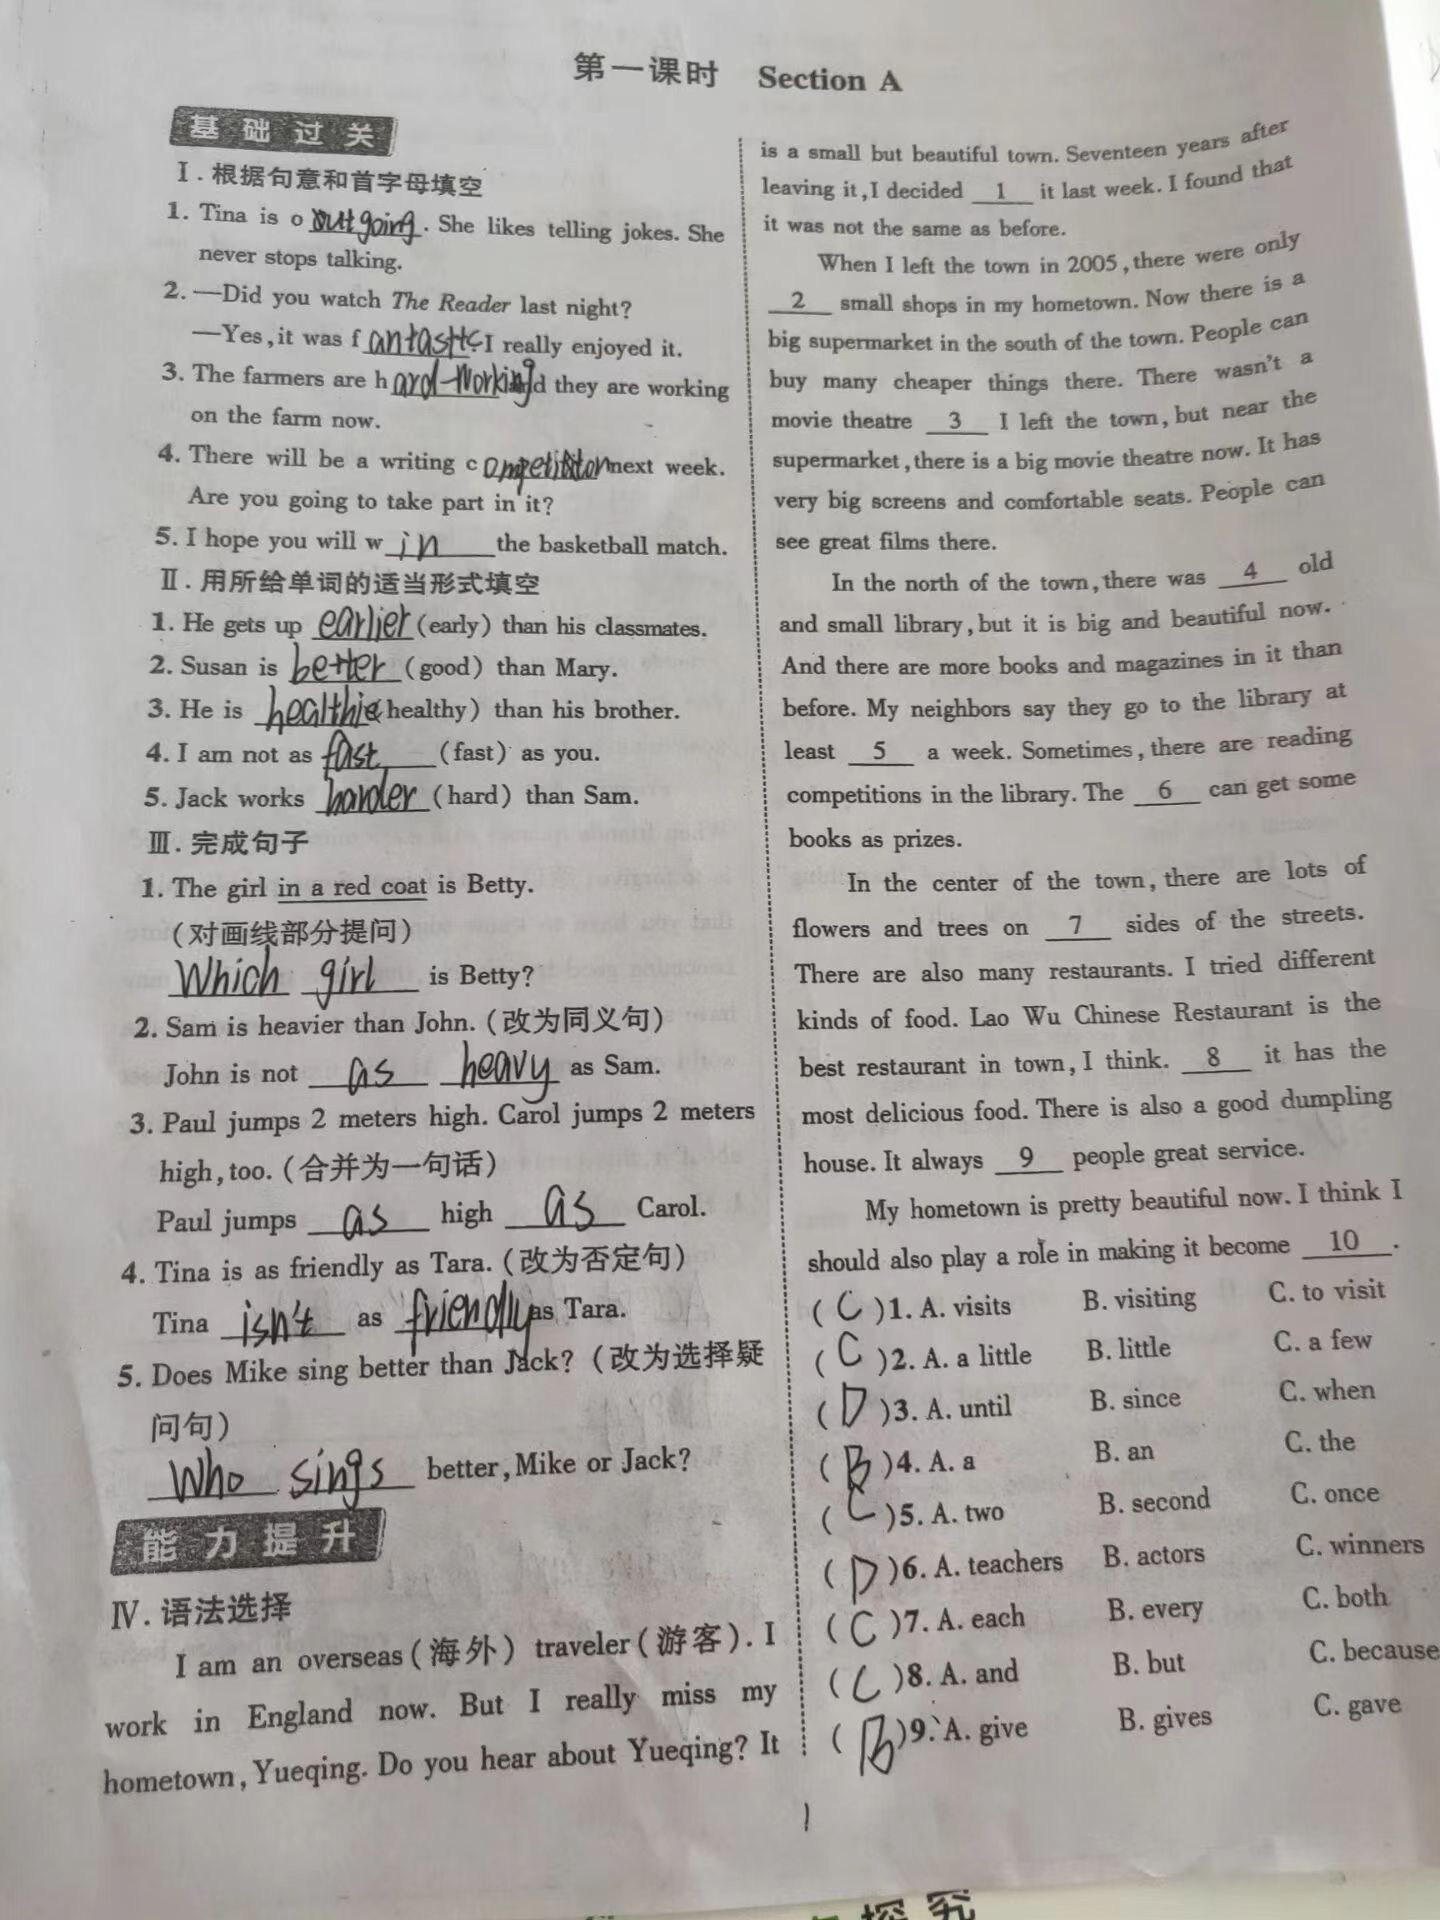 第一课时 Section A
基础过关
Ⅰ.根据句意和首字母填空
1. Tina is o outgoing. She likes telling jokes. She
never stops talking.
2. —Did you watch The Reader last night?
—Yes, it was fantastic. I really enjoyed it.
3. The farmers are hard-working and they are working
on the farm now.
4. There will be a writing competition next week.
Are you going to take part in it?
5. I hope you will win the basketball match.
Ⅱ.用所给单词的适当形式填空
1. He gets up earlier (early) than his classmates.
2. Susan is better (good) than Mary.
3. He is healthier (healthy) than his brother.
4. I am not as fast (fast) as you.
5. Jack works harder (hard) than Sam.
Ⅲ.完成句子
1. The girl in a red coat is Betty.
(对画线部分提问)
Which girl is Betty?
2. Sam is heavier than John. (改为同义句)
John is not as heavy as Sam.
3. Paul jumps 2 meters high. Carol jumps 2 meters
high, too. (合并为一句话)
Paul jumps as high as Carol.
4. Tina is as friendly as Tara. (改为否定句)
Tina isn't as friendly as Tara.
5. Does Mike sing better than Jack? (改为选择疑
问句)
Who sings better, Mike or Jack?
能力提升
Ⅳ.语法选择
I am an overseas(海外) traveler(游客). I
work in England now. But I really miss my
hometown, Yueqing. Do you hear about Yueqing? It
is a small but beautiful town. Seventeen years after
leaving it, I decided 1 it last week. I found that
it was not the same as before.
When I left the town in 2005, there were only
2 small shops in my hometown. Now there is a
big supermarket in the south of the town. People can
buy many cheaper things there. There wasn't a
movie theatre 3 I left the town, but near the
supermarket, there is a big movie theatre now. It has
very big screens and comfortable seats. People can
see great films there.
In the north of the town, there was 4 old
and small library, but it is big and beautiful now.
And there are more books and magazines in it than
before. My neighbors say they go to the library at
least 5 a week. Sometimes, there are reading
competitions in the library. The 6 can get some
books as prizes.
In the center of the town, there are lots of
flowers and trees on 7 sides of the streets.
There are also many restaurants. I tried different
kinds of food. Lao Wu Chinese Restaurant is the
best restaurant in town, I think. 8 it has the
most delicious food. There is also a good dumpling
house. It always 9 people great service.
My hometown is pretty beautiful now. I think I
should also play a role in making it become 10.
(C)1. A. visits B. visiting C. to visit
(C)2. A. a little B. little C. a few
(D)3. A. until B. since C. when
(B)4. A. a B. an C. the
(C)5. A. two B. second C. once
(D)6. A. teachers B. actors C. winners
(C)7. A. each B. every C. both
(C)8. A. and B. but C. because
(B)9. A. give B. gives C. gave
1
探究